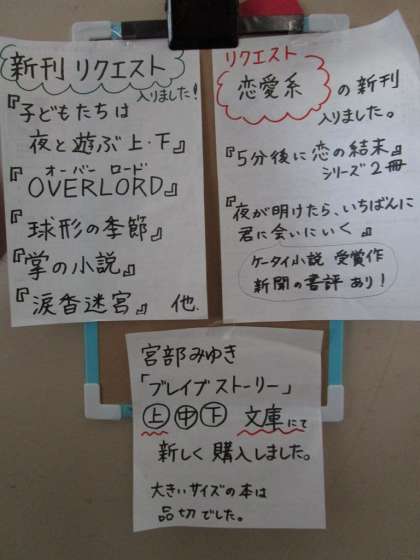 新刊 リクエスト
入りました!
『子どもたちは
夜と遊ぶ 上・下』
オーバー ロード
『OVERLORD』
『球形の季節』
『掌の小説』
『涙香迷宮』 他
リクエスト
恋愛系 の新刊
入りました。
『5分後に恋の結末』
シリーズ2冊
『夜が明けたら、いちばんに
君に会いにいく』
ケータイ小説 受賞作
新聞の書評 あり!
宮部みゆき
「ブレイブストーリー」
上 中 下 文庫にて
新しく購入しました。
大きいサイズの本は
品切でした。